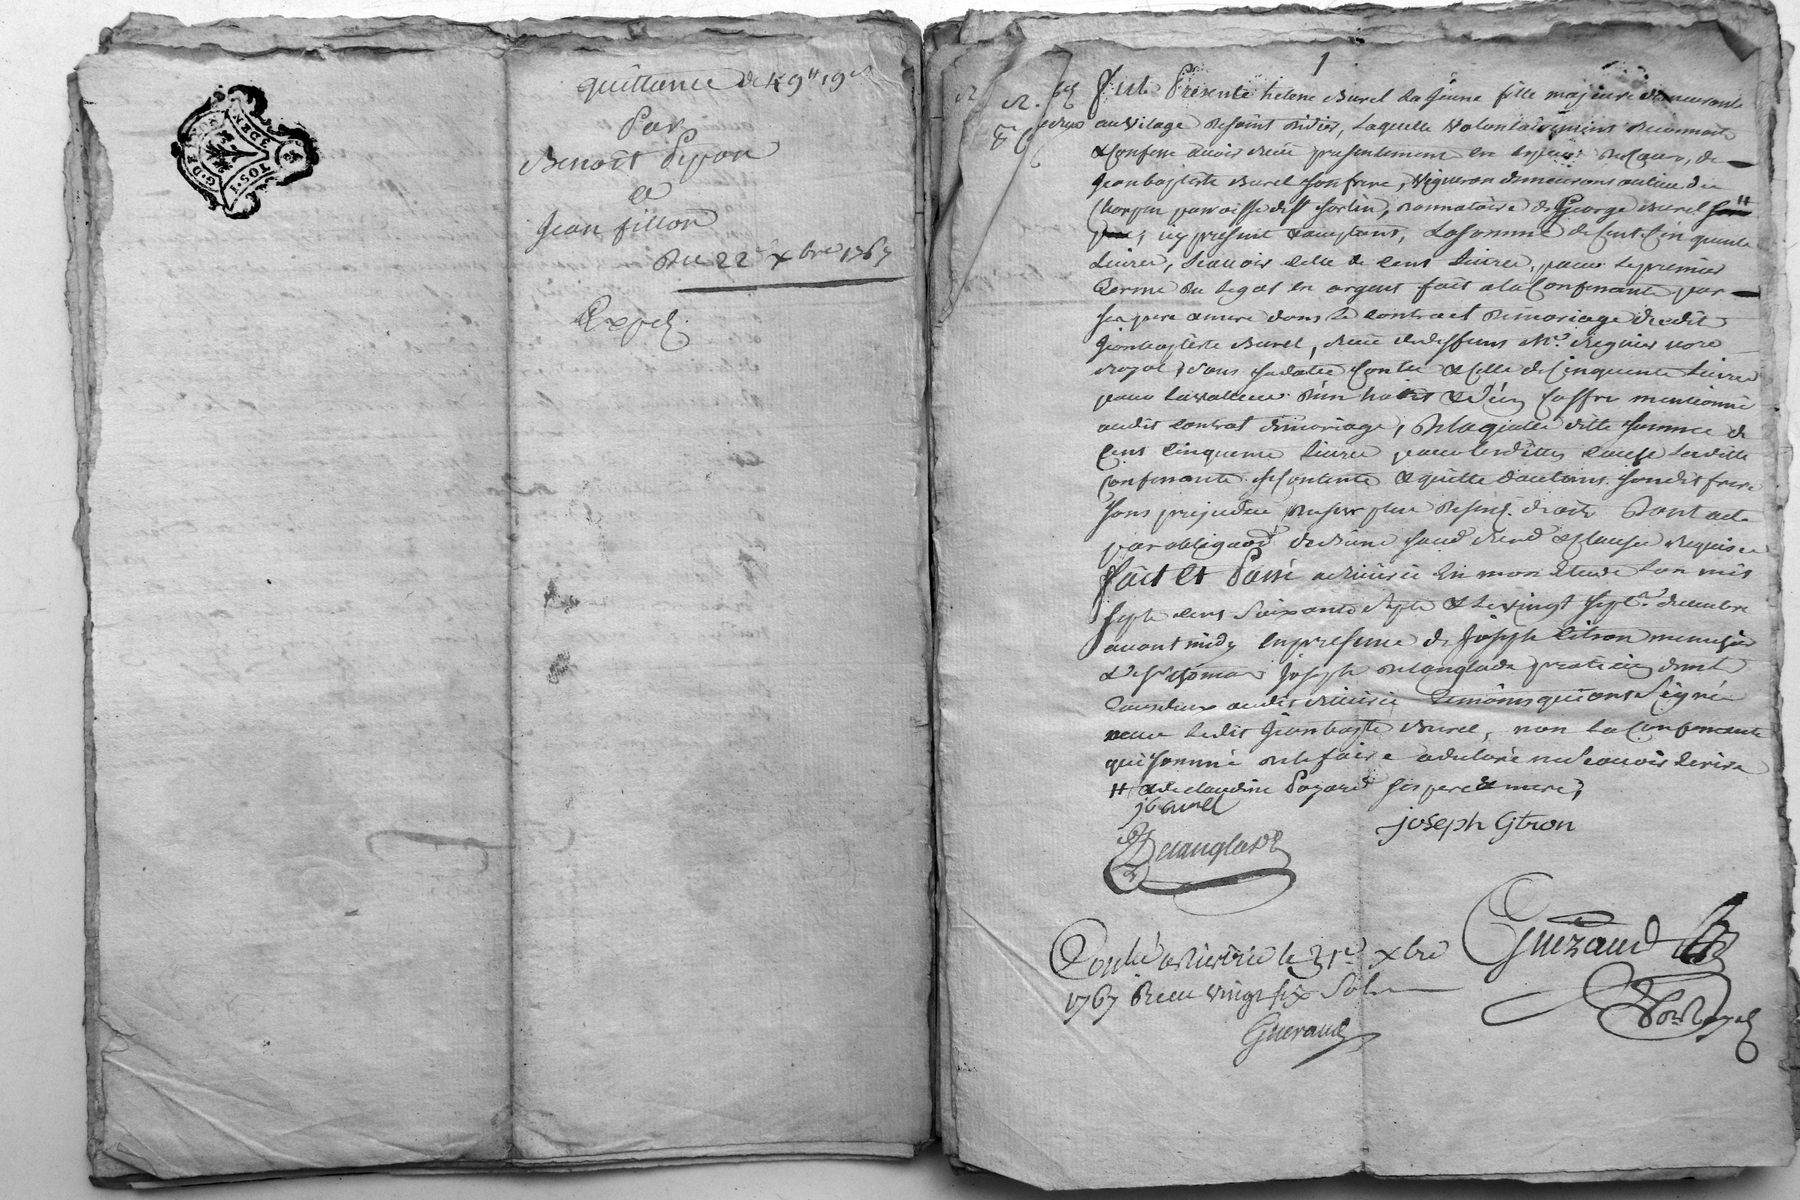 G. DE
TOS. I
DEN.
quittance de 49ᴴ 19ˢ
Par
Benoit Peyron
a
Jean fillon
Du 22 xbre 1767
Exped.
1
fut Présente helene Burel la jeune fille majeure demeurant
au vilage de saint Didier, laquelle volontairement Reconnoit
& Confesse avoir reçu presentement en especes de Cours, de
Jean baptiste Burel son frere, Vigneron demeurant au lieu de
paroisse de st donnataire de George Burel
icy present acceptant, La somme de Cent Cinquante
Livres, scavoir celle de Cent Livres, pour le premier
terme du legat en argent fait a la Confessante par
ses pere & mere dans le Contract de mariage dudit
Jean baptiste Burel, reçu deffunt Me. Regnier nore
Royal, dans sa datte & Celle de Cinquante Livres
pour la valleur d'un habit & d'un Coffre mentionné
audit Contrat de mariage, de laquelle ditte somme de
Cent Cinquante Livres pour lesdittes Causes laditte
Confessante se Contente & quitte d'autant sondit frere
sans prejudice du surplus de ses droits Dont acte
par obligaon de Biens & clauses Requises
Fait Et Passé a en mon Etude L'an mil
sept cent soixante sept & le vingt sept decembre
avant midy en presence de Joseph Citron menuisier
& de sr thomas Joseph Delanglade praticien demt
tous deux audit temoins qui ont signé
avec ledit Jean bapte Burel, non la Confessante
qui sommé de le faire a declaré ne scavoir Ecrire
# & de claudine Pozard ses pere & mere,
jb burel
joseph Citron
Delanglade
Gueraud
No. Royal
Conlé a le 31e xbre
1767 Reçu vingt six Sols
Gueraud